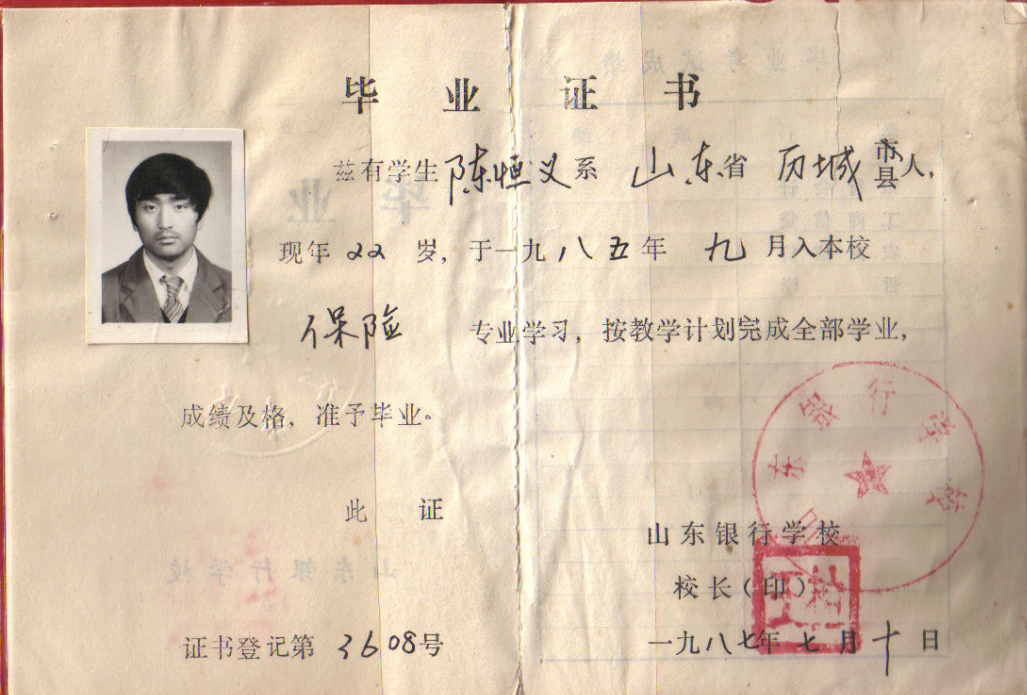 毕业证书
兹有学生陈恒义系 山东省 历城市县人，
现年22岁，于一九八五年九月入本校
保险 专业学习，按教学计划完成全部学业，
成绩及格，准予毕业。
此证
山东银行学校
山东银行学校
校长（印）
证书登记第3608号
一九八七年七月十日